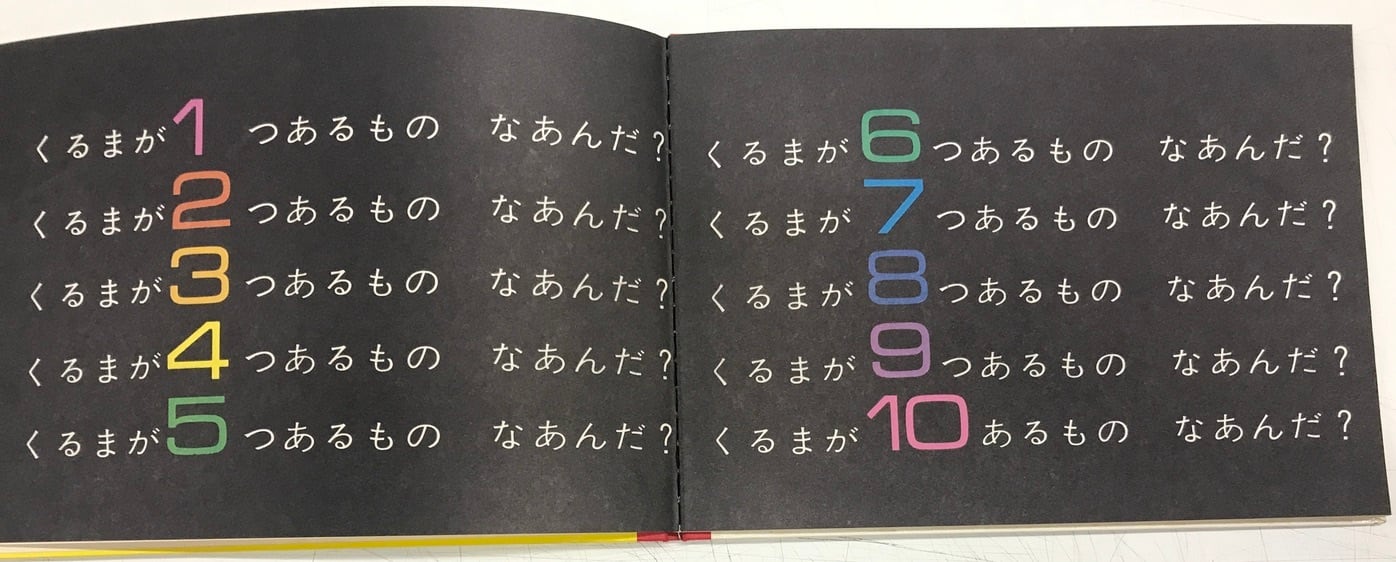 くるまが1つあるもの なあんだ？
くるまが2つあるもの なあんだ？
くるまが3つあるもの なあんだ？
くるまが4つあるもの なあんだ？
くるまが5つあるもの なあんだ？
くるまが6つあるもの なあんだ？
くるまが7つあるもの なあんだ？
くるまが8つあるもの なあんだ？
くるまが9つあるもの なあんだ？
くるまが10あるもの なあんだ？